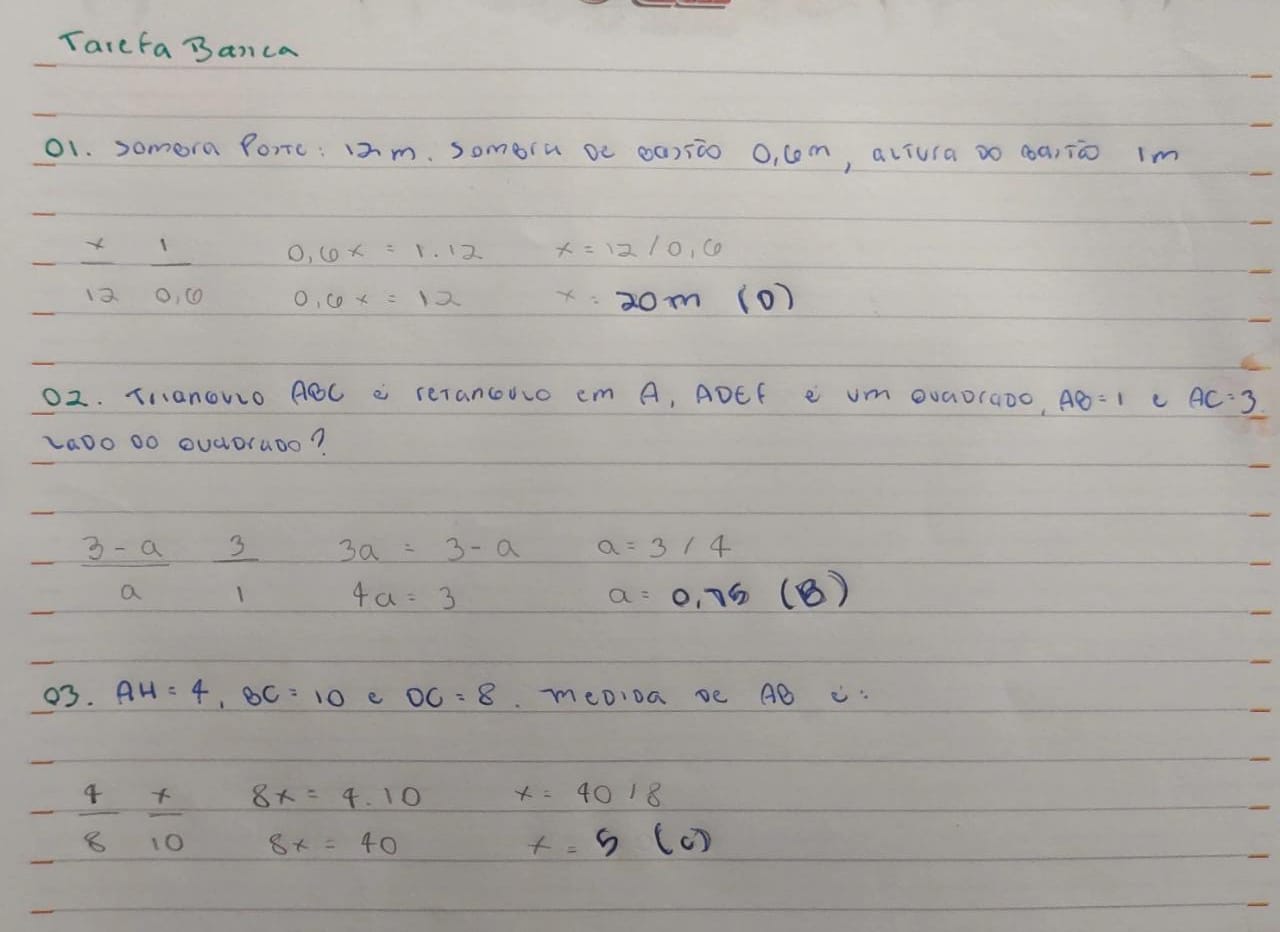 Tarefa Basica
01. Sombra Poste: 12m. Sombra de bastão 0,6m, altura do bastão 1m
x 1 0,6x = 1.12 x = 12/0,6
12 0,6 0,6x = 12 x = 20m (D)
02. Triangulo ABC é retangulo em A, ADEF é um quadrado, AB=1 e AC=3.
Lado do quadrado?
3-a 3 3a = 3-a a = 3/4
a 1 4a = 3 a = 0,75 (B)
03. AH=4, BC=10 e DC=8. medida de AB é:
4 x 8x = 4.10 x = 40/8
8 10 8x = 40 x = 5 (C)